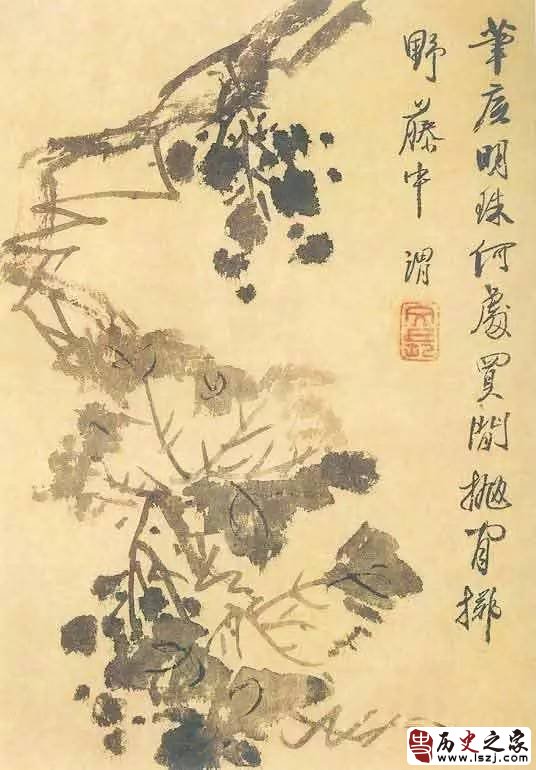 筆底明珠何處買閒拋閒擲
野藤中 渭
文長
史 历史之家
www.lszj.com